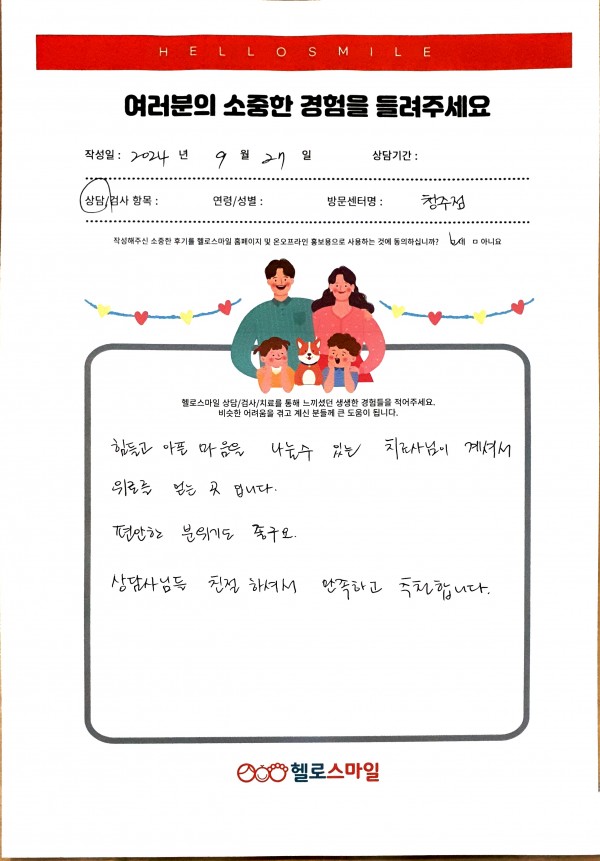 HELLOSMILE
여러분의 소중한 경험을 들려주세요
작성일 : 2024 년 9 월 27 일 상담기간 :
상담/검사 항목 : 연령/성별 : 방문센터명 : 청주점
작성해주신 소중한 후기를 헬로스마일 홈페이지 및 온오프라인 홍보용으로 사용하는 것에 동의하십니까? 네 ㅁ 아니요
헬로스마일 상담/검사/치료를 통해 느끼셨던 생생한 경험들을 적어주세요.
비슷한 어려움을 겪고 계신 분들께 큰 도움이 됩니다.
힘들고 아픈 마음을 나눌수 있는 치료사님이 계셔서
위로를 얻는 곳 입니다.
편안한 분위기도 좋구요.
상담사님들 친절하셔서 만족하고 추천합니다.
헬로스마일